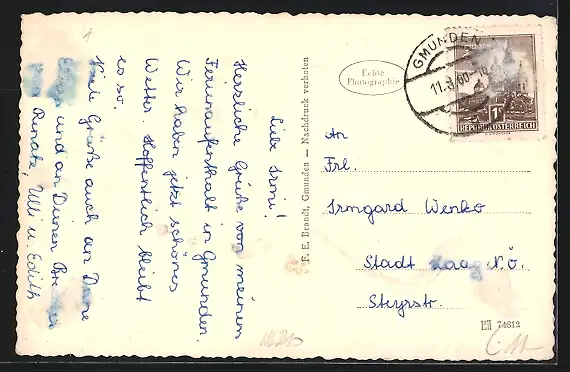 Liebe Irmi!
Herzliche Grüße von meinem
Ferienaufenthalt in Gmunden.
Wir haben jetzt schönes
Wetter. Hoffentlich bleibt
es so.
Viele Grüße auch an Deine
Eltern und an Deinen Bruder
von Renate, Ulli u. Edith
F. E. Brandt, Gmunden — Nachdruck verboten
Echte
Photographie
GMUNDEN
11.3.60
1S
REPUBLIK ÖSTERREICH
An
Frl.
Irmgard Wenko
Stadt Haag N.Ö.
Steyrstr.
74812